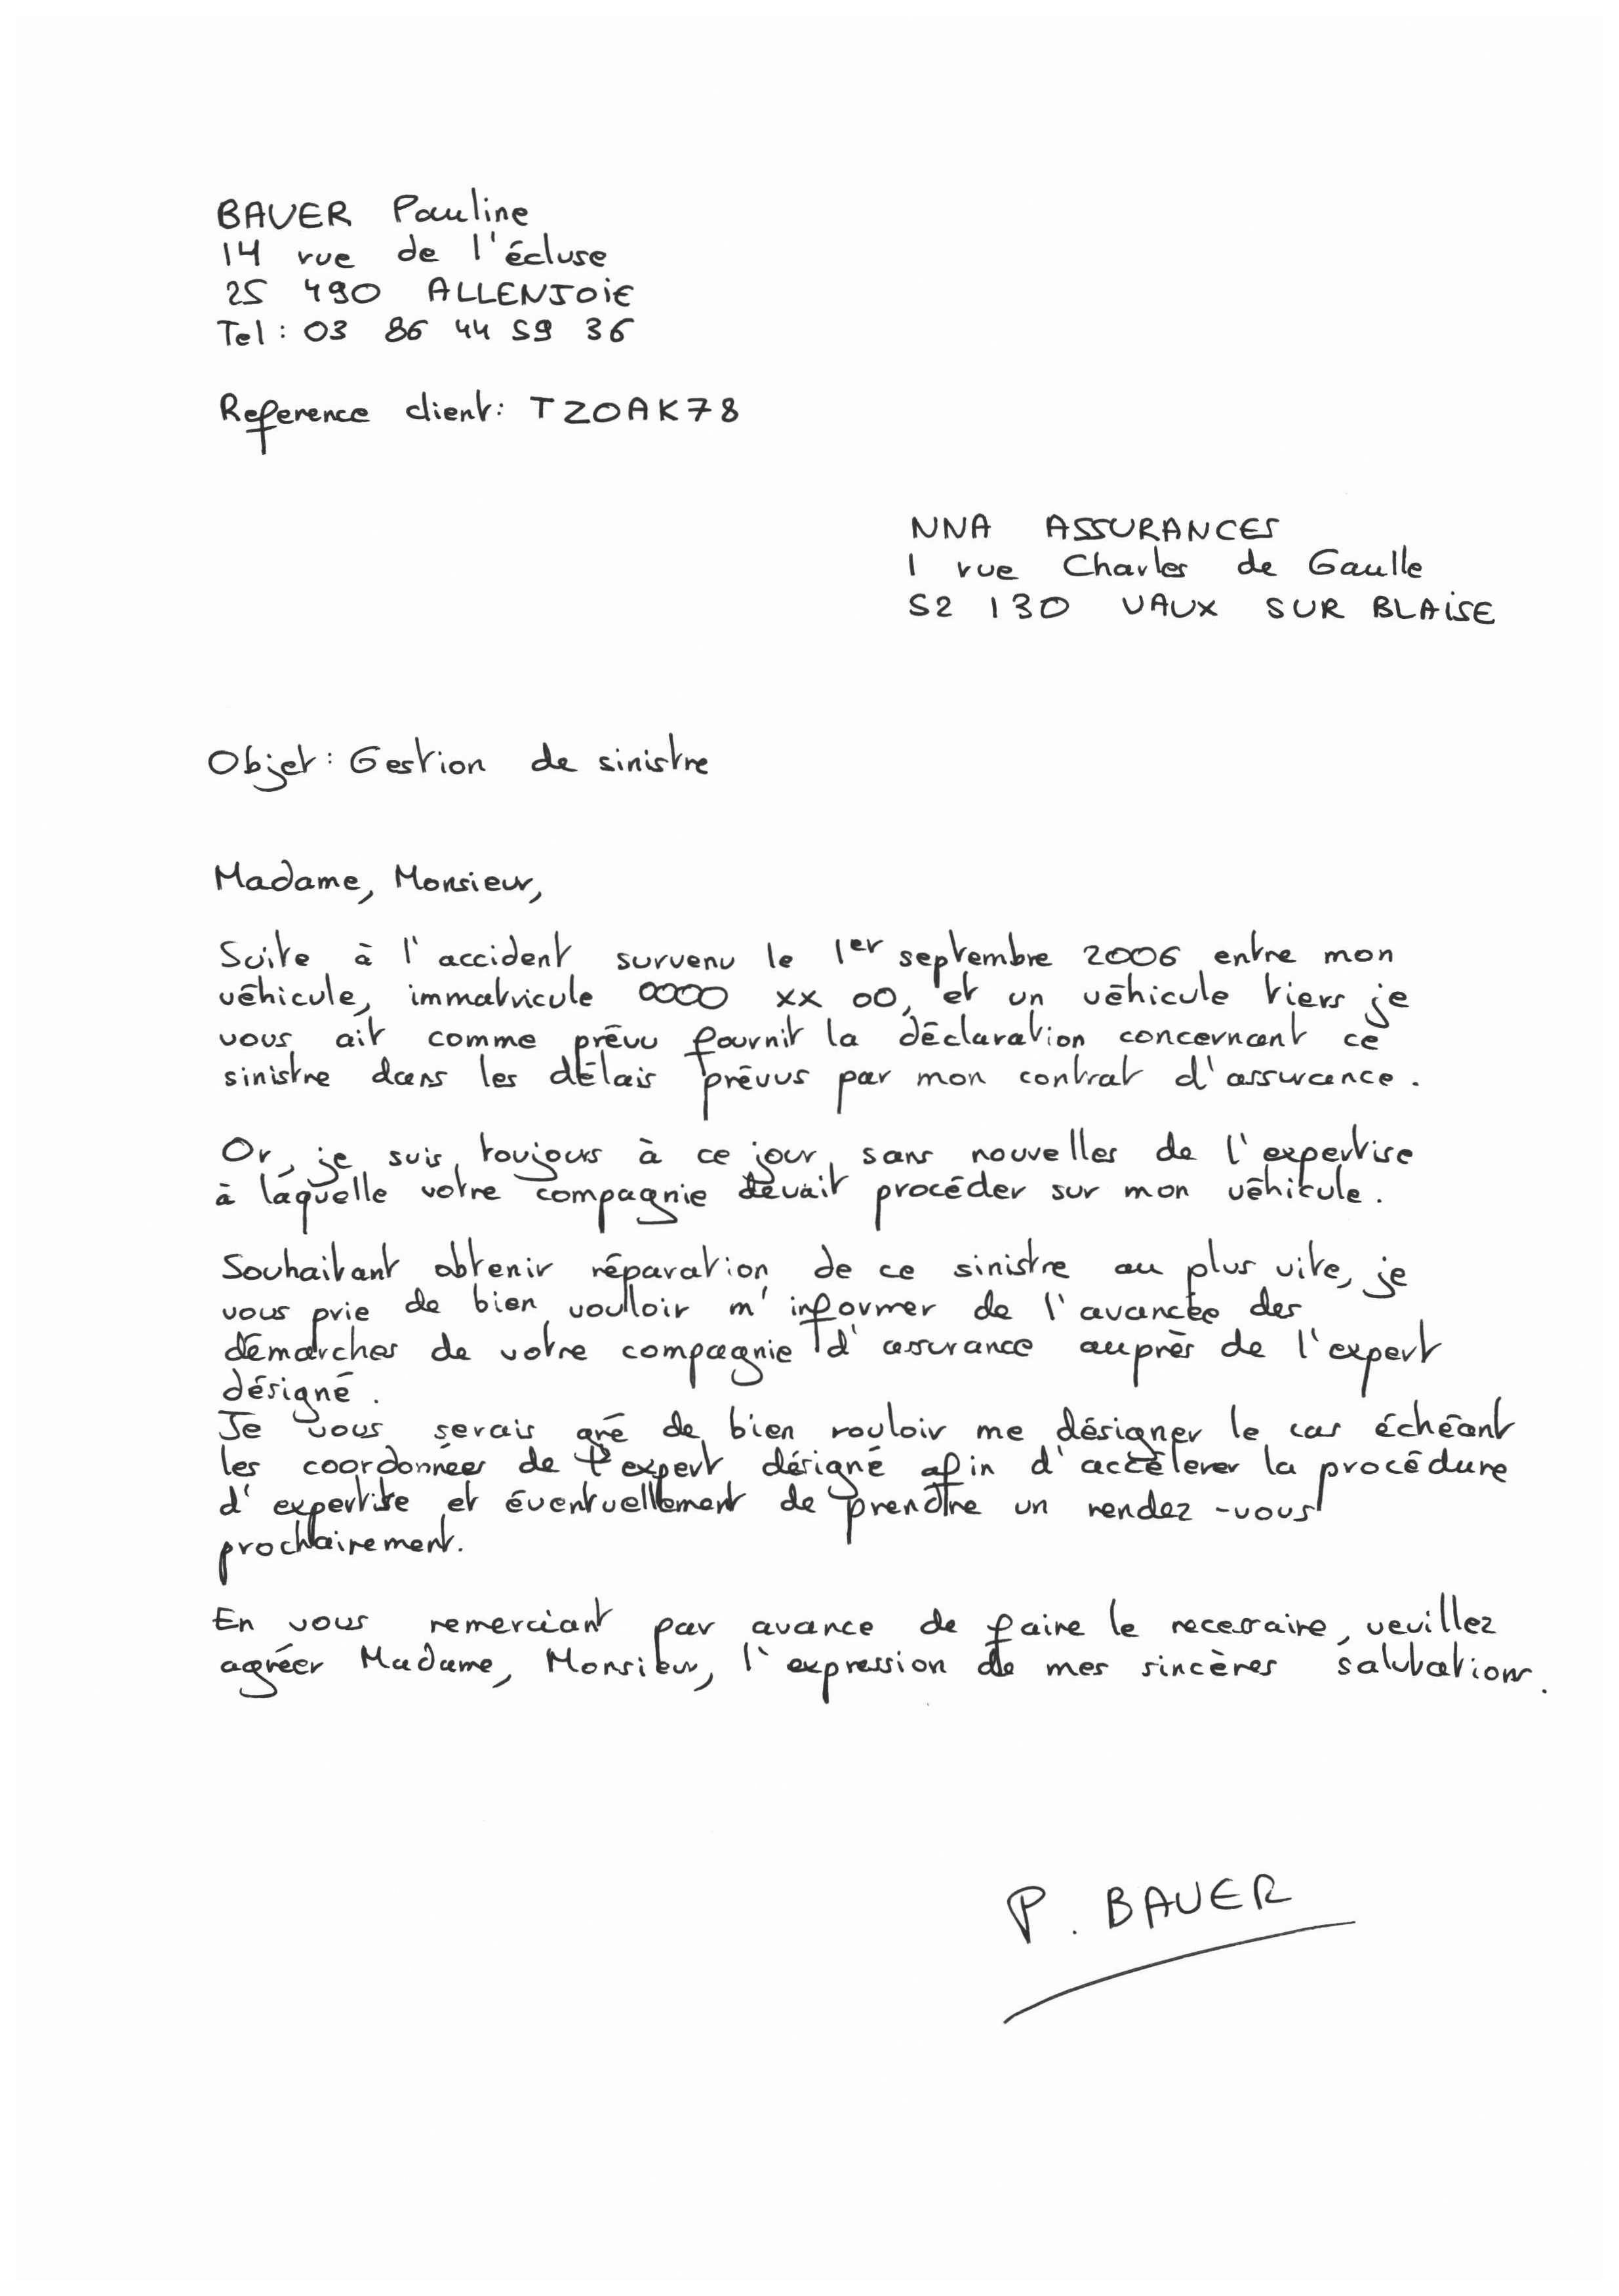 BAUER Pauline
14 rue de l'écluse
25 490 ALLENJOiE
Tel : 03 86 44 59 36
Reference client : TZOAK78
NNA ASSURANCES
1 rue Charles de Gaulle
52 130 VAUX SUR BLAiSE
Objet : Gestion de sinistre
Madame, Monsieur,
Suite à l'accident survenu le 1er septembre 2006 entre mon
véhicule, immatricule 0000 xx 00, et un véhicule tiers je
vous ait comme prévu fournit la déclaration concernant ce
sinistre dans les délais prévus par mon contrat d'assurance.
Or, je suis toujours à ce jour sans nouvelles de l'expertise
à laquelle votre compagnie devait procéder sur mon véhicule.
Souhaitant obtenir réparation de ce sinistre au plus vite, je
vous prie de bien vouloir m'informer de l'avancée des
démarches de votre compagnie d'assurance auprès de l'expert
désigné.
Je vous serais gré de bien vouloir me désigner le cas échéant
les coordonnées de l'expert désigné afin d'accélerer la procédure
d'expertise et éventuellement de prendre un rendez-vous
prochainement.
En vous remerciant par avance de faire le necessaire, veuillez
agréer Madame, Monsieur, l'expression de mes sincères salutations.
P. BAUER